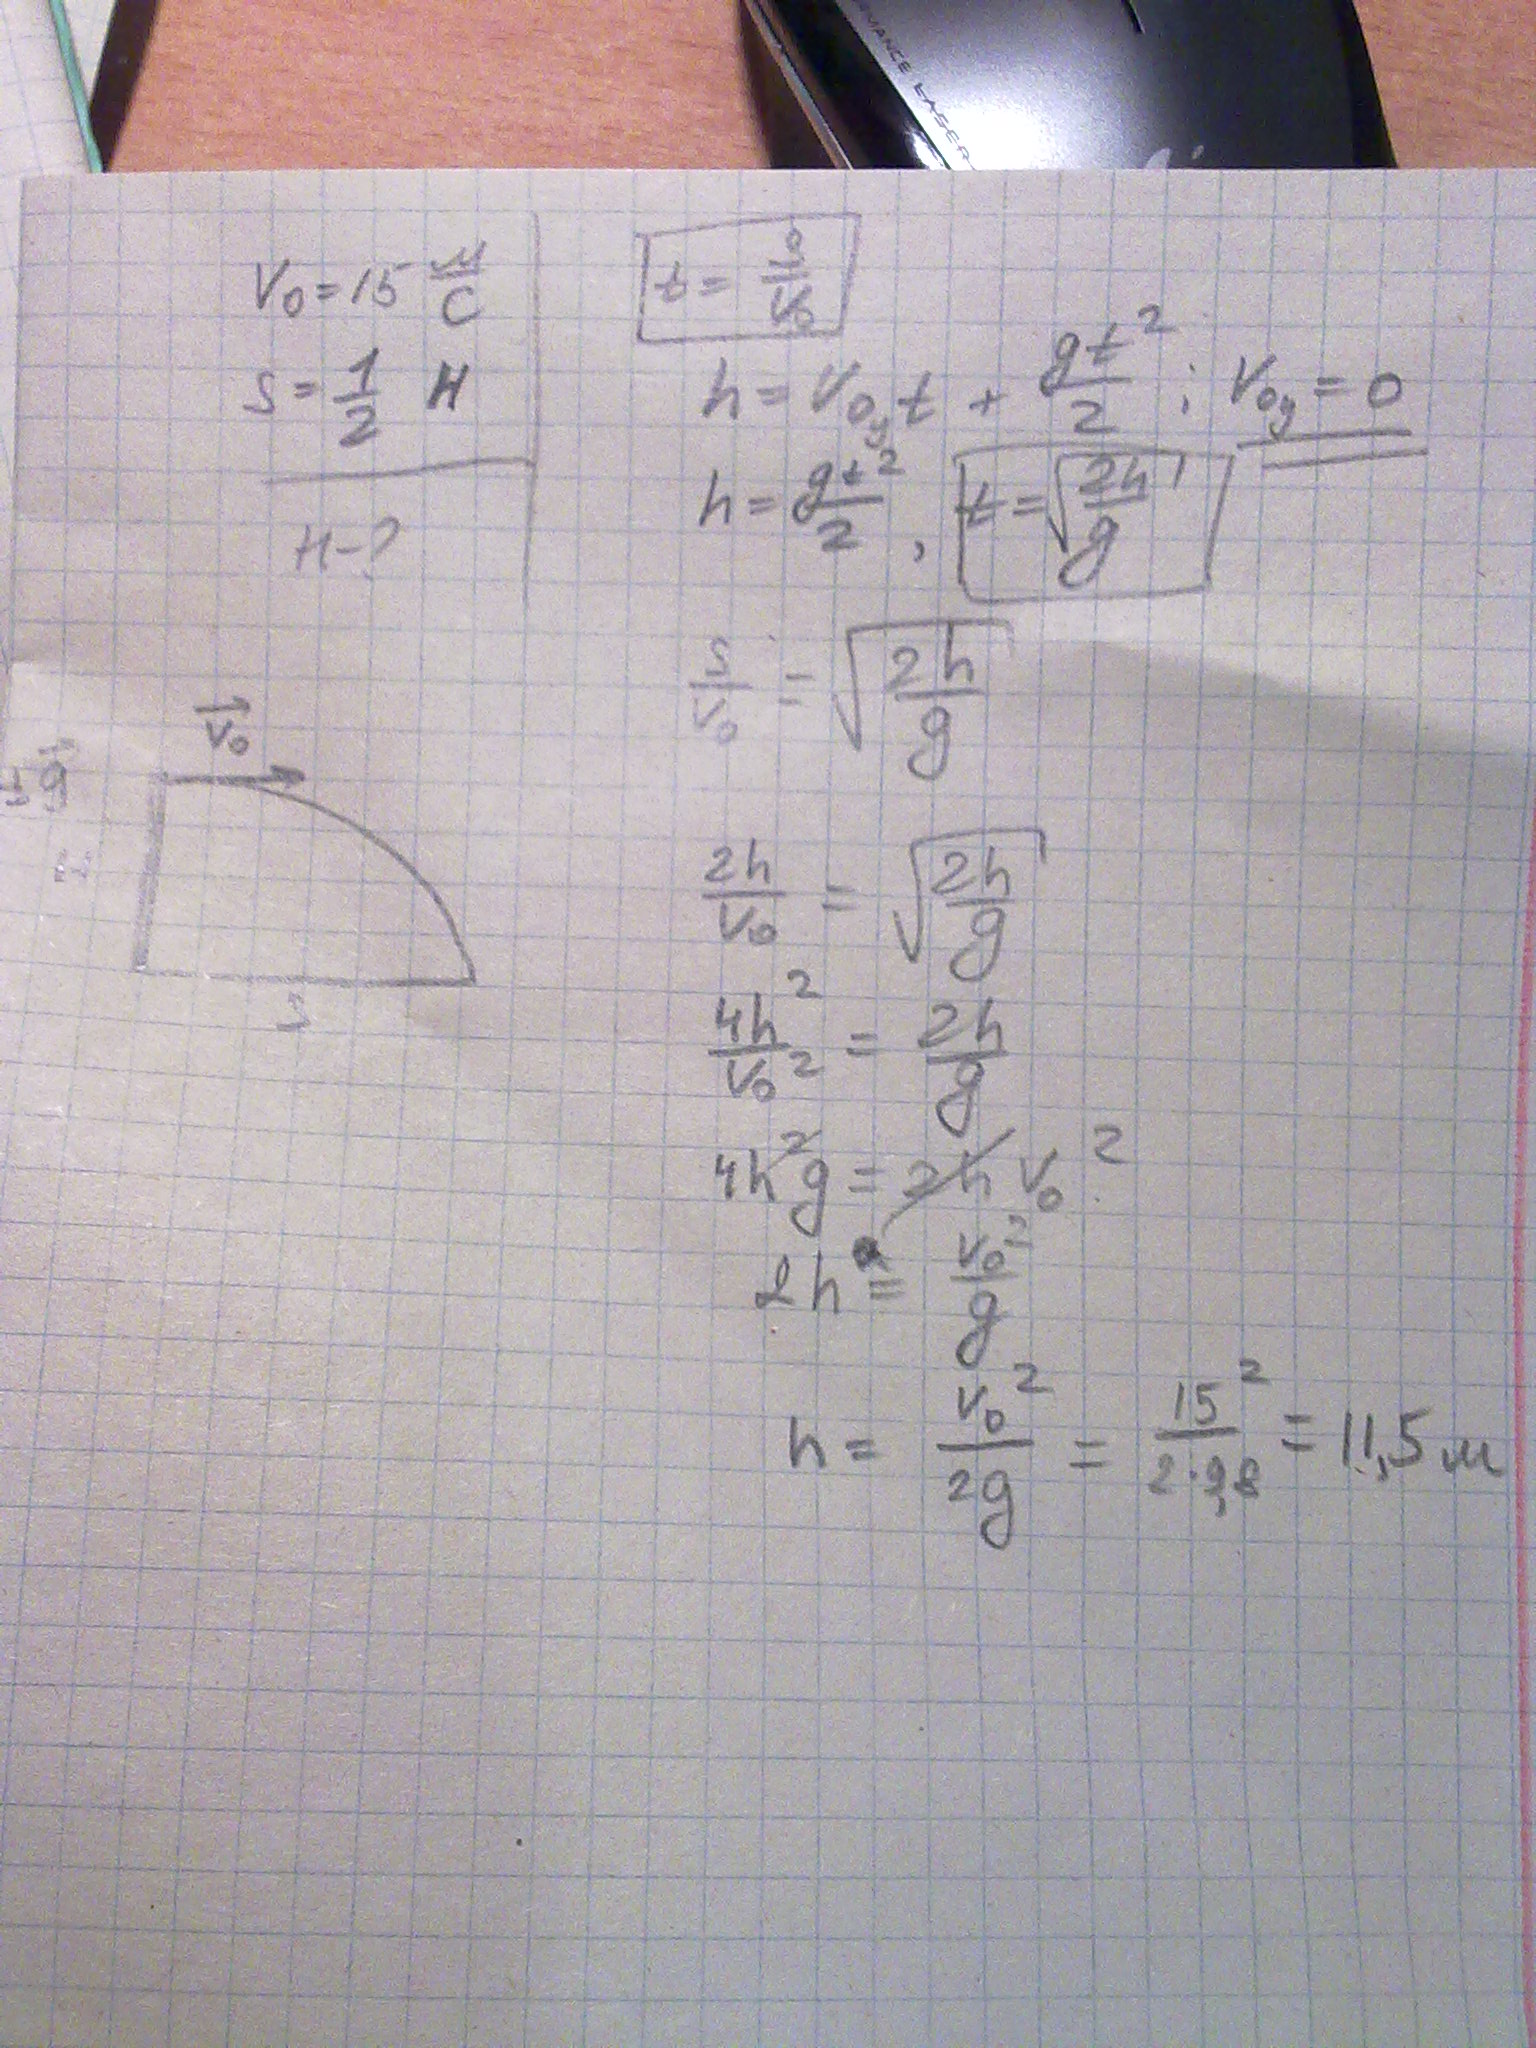 RMANCE LASER
V₀ = 15 м/с
S = 1/2 H
H - ?
t = S/V₀
h = V₀yt + gt²/2 ; V₀y = 0
h = gt²/2 , t = √(2h/g)
S/V₀ = √(2h/g)
V₀
g
S
2h/V₀ = √(2h/g)
4h²/V₀² = 2h/g
4h²g = 2h V₀²
2h = V₀²/g
h = V₀²/2g = 15²/2·9,8 = 11,5 м